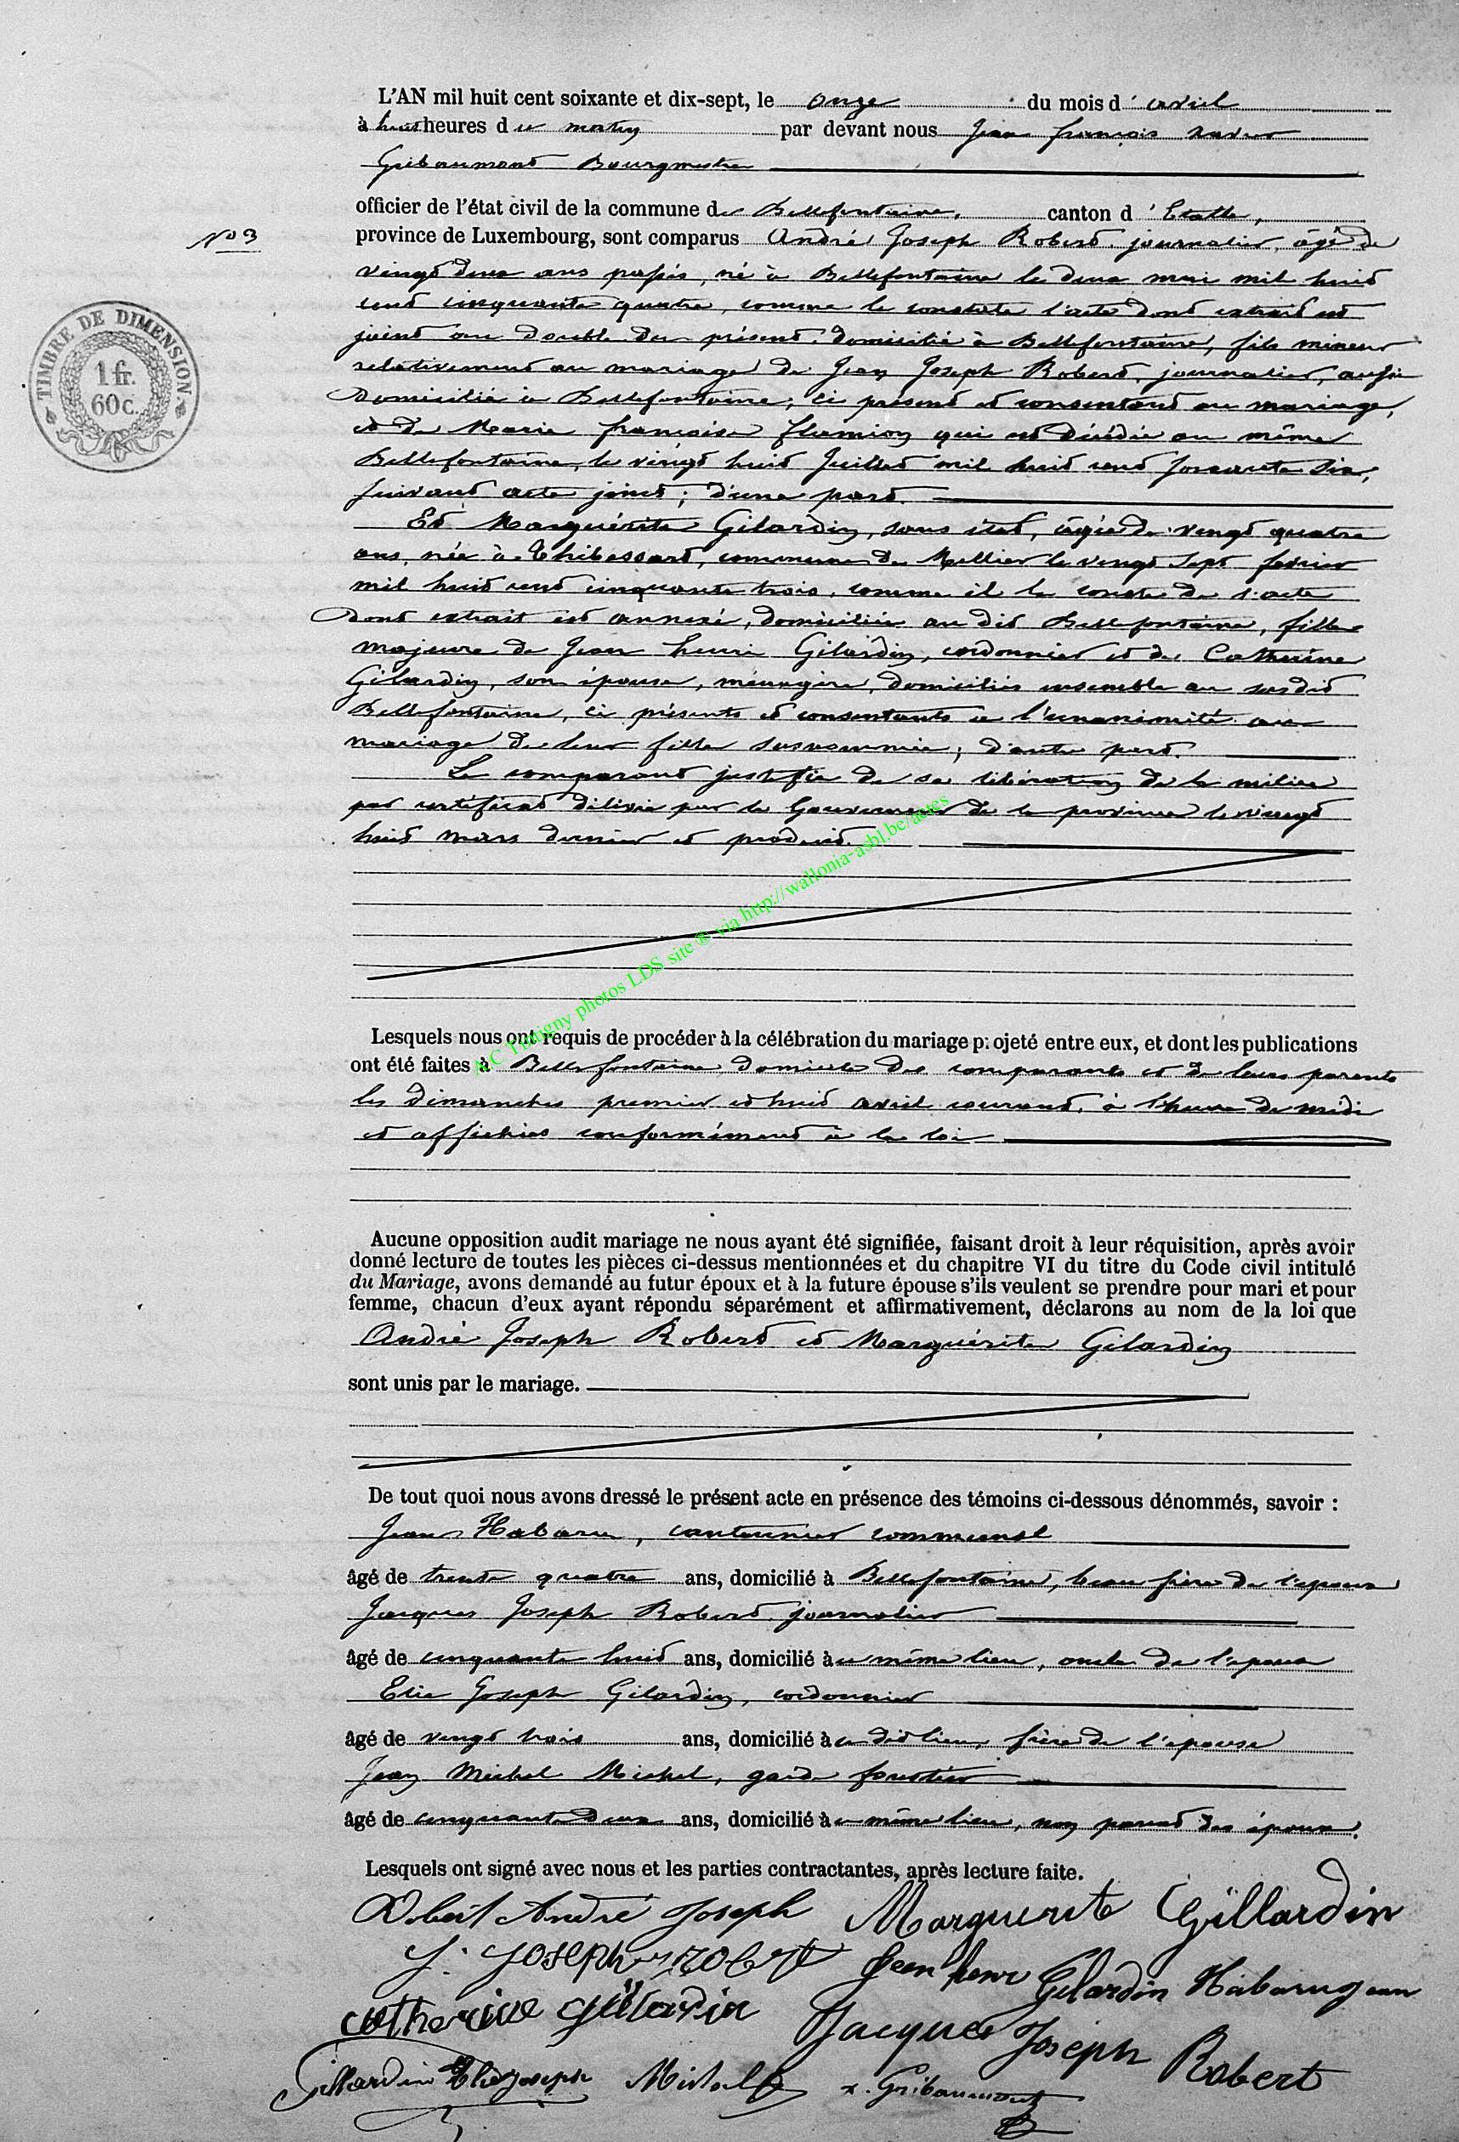 L'AN mil huit cent soixante et dix-sept, le onze du mois d' avril
à huit heures du matin par devant nous Jean françois xavier
Gribaumont Bourgmestre
officier de l'état civil de la commune de Bellefontaine, canton d' Etalle,
N° 3
province de Luxembourg, sont comparus André Joseph Robert, journalier, âgé de
vingt deux ans passés, né à Bellefontaine le deux mai mil huit
cent cinquante quatre, comme le constate l'acte dont extrait est
joint au double du présent, domicilié à Bellefontaine, fils mineur
relativement au mariage de Jean Joseph Robert, journalier, aussi
domicilié à Bellefontaine, ci présent et consentant au mariage,
et de Marie françoise flamion qui est décédée au même
Bellefontaine, le vingt huit Juillet mil huit cent soixante six,
suivant acte joint; d'une part.
Et Marguérite Gilardin, sans état, âgée de vingt quatre
ans, née à Thibessart, commune de Mellier le vingt sept fevrier
mil huit cent cinquante trois, comme il le conste de l'acte
dont extrait est annexé, domiciliée au dit Bellefontaine, fille
majeure de Jean henri Gilardin, cordonnier et de Catherine
Gilardin, son épouse, ménagère, domiciliés ensemble au susdit
Bellefontaine, ci présents et consentants à l'unanimité au
mariage de leur fille susnommée; d'autre part.
Le comparant justifie de sa libération de la milice
par certificat délivré par le Gouverneur de la province le vingt
huit mars dernier et produit.
A.C Tintigny photos LDS site ® via http://wallonia-asbl.be/actes
TIMBRE DE DIMENSION.
1 fr.
60 c.
Lesquels nous ont requis de procéder à la célébration du mariage p:ojeté entre eux, et dont les publications
ont été faites à Bellefontaine domicile des comparants et de leurs parents
les dimanches premier et huit avril courant, à l'heure de midi
et affichées conformément à la loi
Aucune opposition audit mariage ne nous ayant été signifiée, faisant droit à leur réquisition, après avoir
donné lecture de toutes les pièces ci-dessus mentionnées et du chapitre VI du titre du Code civil intitulé
du Mariage, avons demandé au futur époux et à la future épouse s'ils veulent se prendre pour mari et pour
femme, chacun d'eux ayant répondu séparément et affirmativement, déclarons au nom de la loi que
André Joseph Robert et Marguérite Gilardin
sont unis par le mariage.
De tout quoi nous avons dressé le présent acte en présence des témoins ci-dessous dénommés, savoir :
Jean Habaru, cantonnier communal
âgé de trente quatre ans, domicilié à Bellefontaine, beau frère de l'epoux
Jacques Joseph Robert, journalier
âgé de cinquante huit ans, domicilié au même lieu, oncle de l'epoux
Elie Joseph Gilardin, cordonnier
âgé de vingt trois ans, domicilié au dit lieu, frère de l'epouse
Jean Michel Michel, garde forestier
âgé de cinquante deux ans, domicilié au même lieu, non parent des époux.
Lesquels ont signé avec nous et les parties contractantes, après lecture faite.
Robert André Joseph Marguerite Gillardin
J. Joseph Robert Jean henri Gilardin Habaru jean
Catherine Gillardin Jacques Joseph Robert
Gillardin Elie Joseph Michel x. Gribaumont